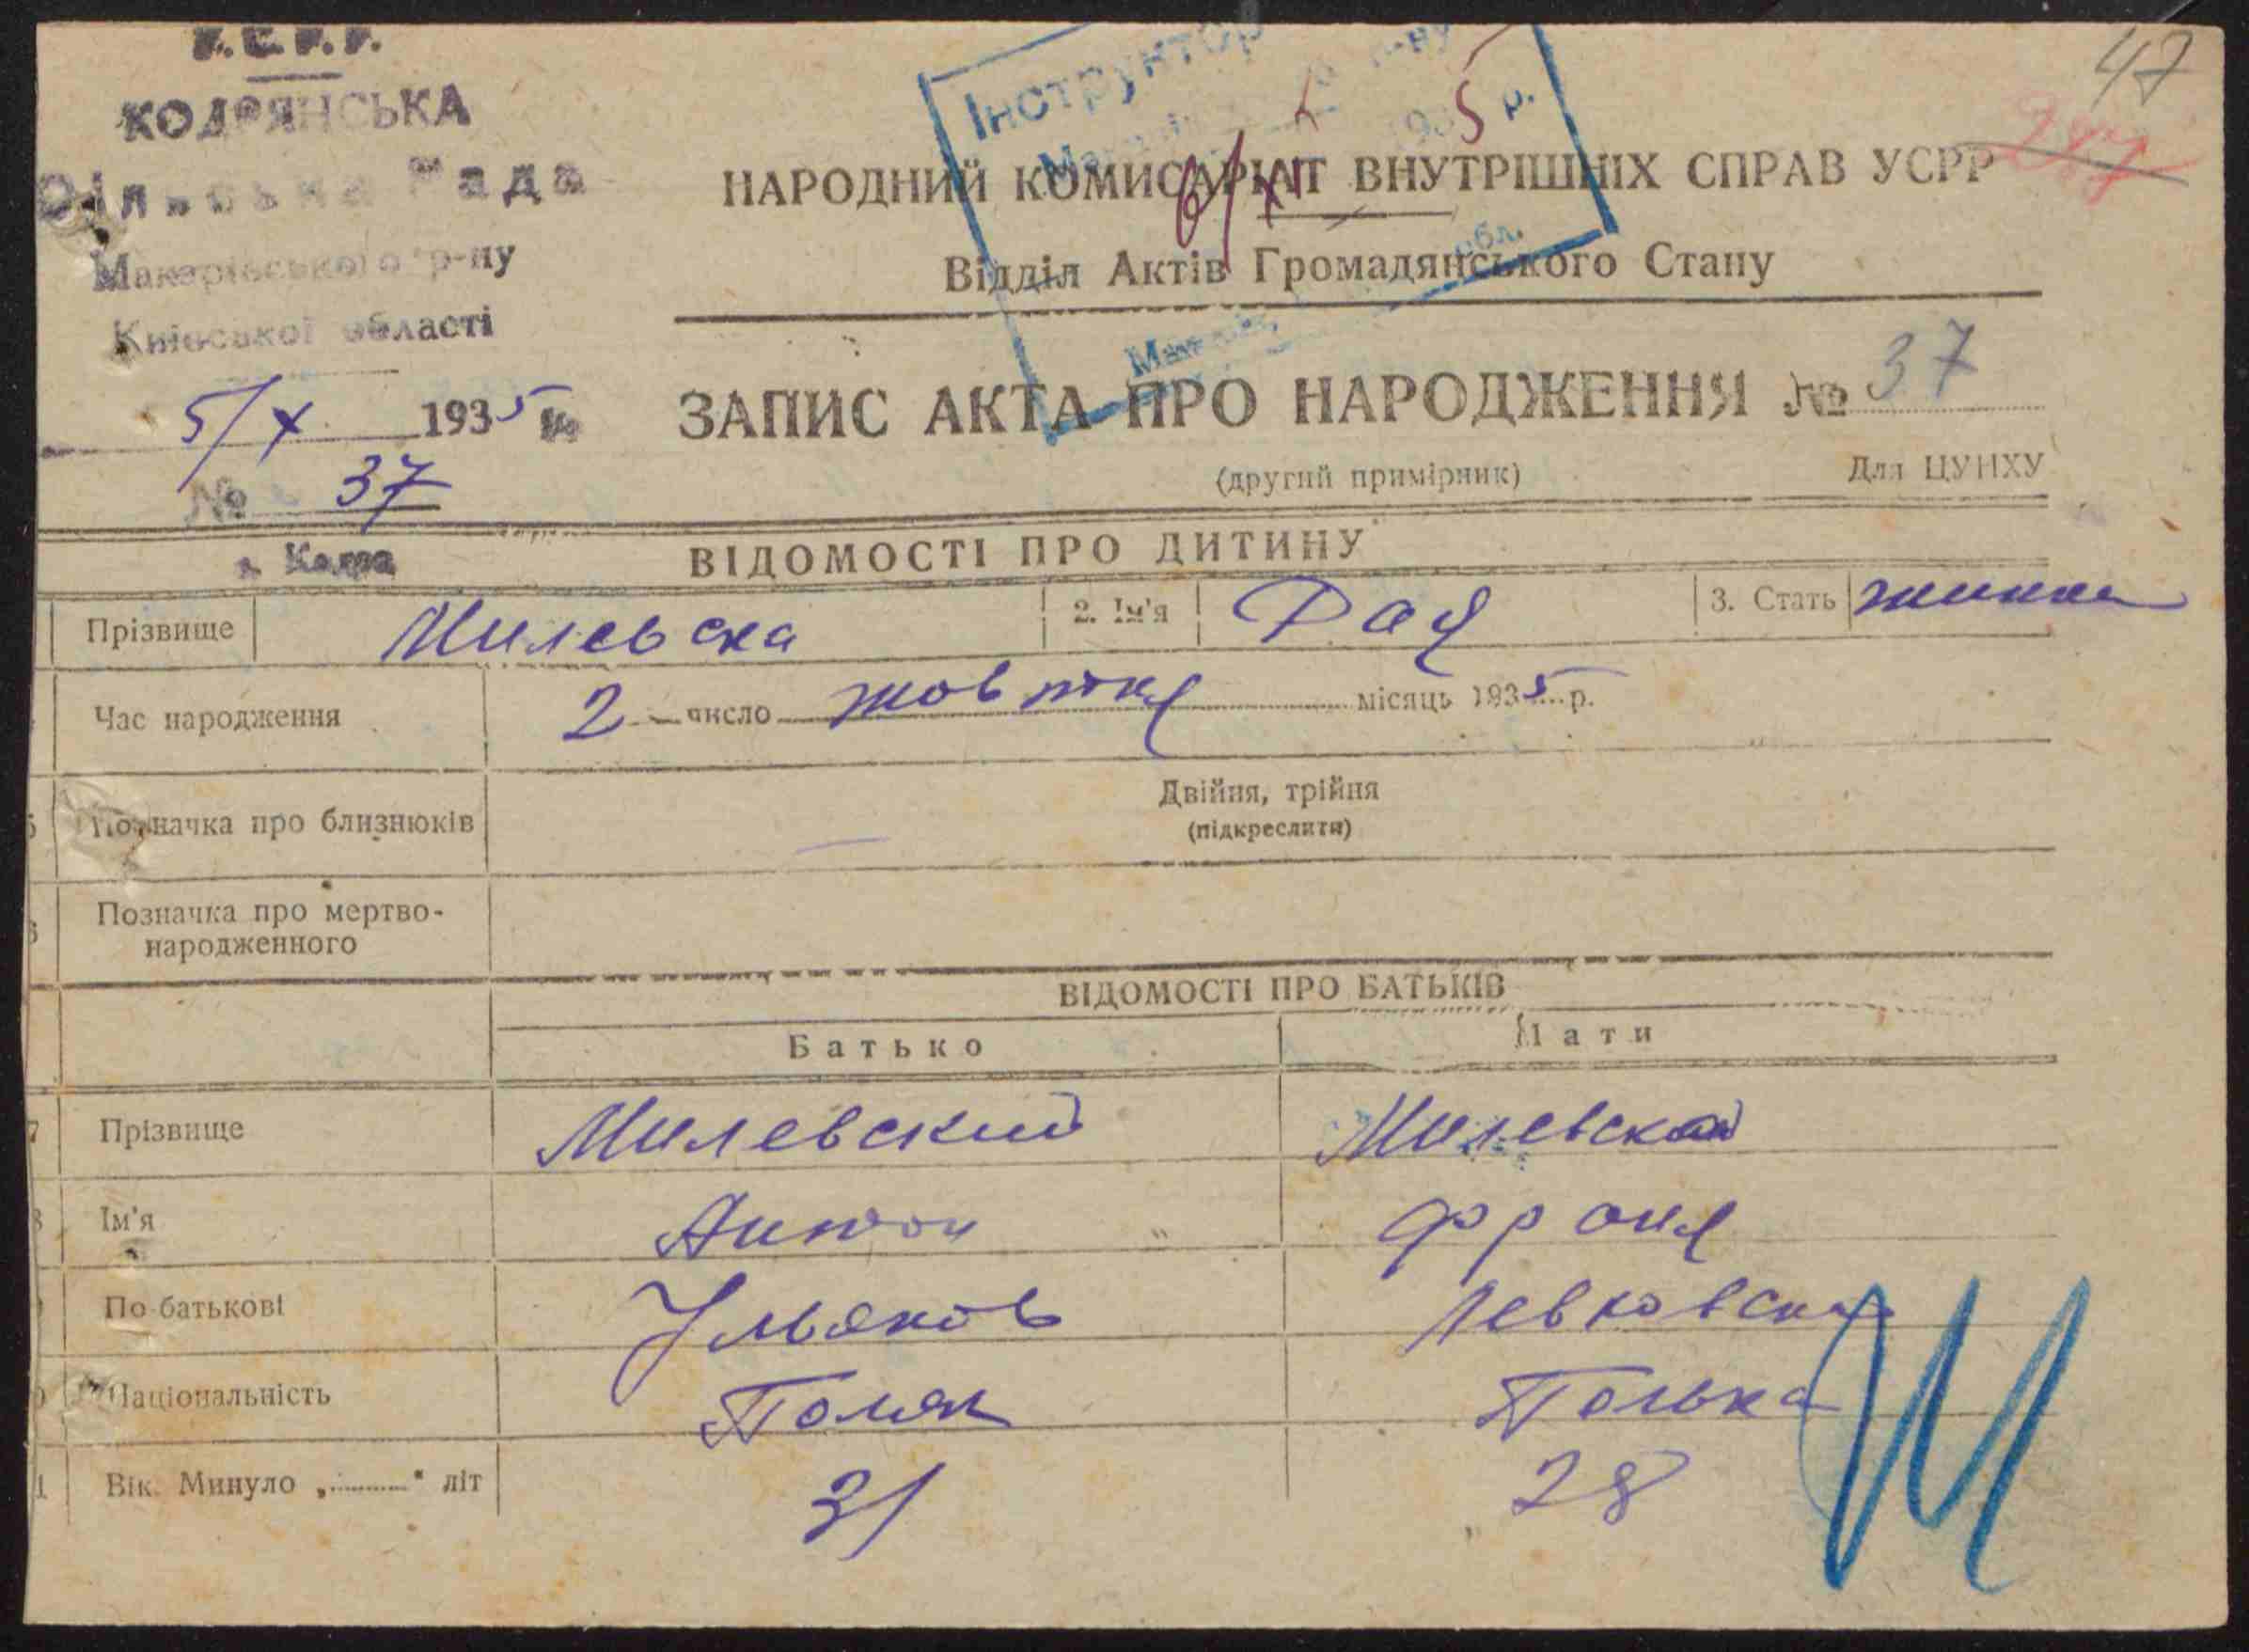 У.С.Р.Р.
КОДРЯНСЬКА
Сільська Рада
Макарівського р-ну
Київської області
5/X 1935
№ 37
Інструктор
р-ну
1935 р.
6/XI
обл.
47
НАРОДНИЙ КОМИСАРІАТ ВНУТРІШНІХ СПРАВ УСРР
Відділ Актів Громадянського Стану
ЗАПИС АКТА ПРО НАРОДЖЕННЯ № 37
(другий примірник) Для ЦУНХУ
ВІДОМОСТІ ПРО ДИТИНУ
Прізвище Милевска 2. Ім'я Рая 3. Стать жинка
Час народження 2 число жовтня місяць 1935 р.
Двійня, трійня
Позначка про близнюків (підкреслити)
Позначка про мертво-
народженного
ВІДОМОСТІ ПРО БАТЬКІВ
Батько Мати
7 Прізвище Милевский Милевская
8 Ім'я Антон Фроня
По-батькові Ульяков Левковска
Національність Поляк Полька
Вік. Минуло „ “ літ 31 28